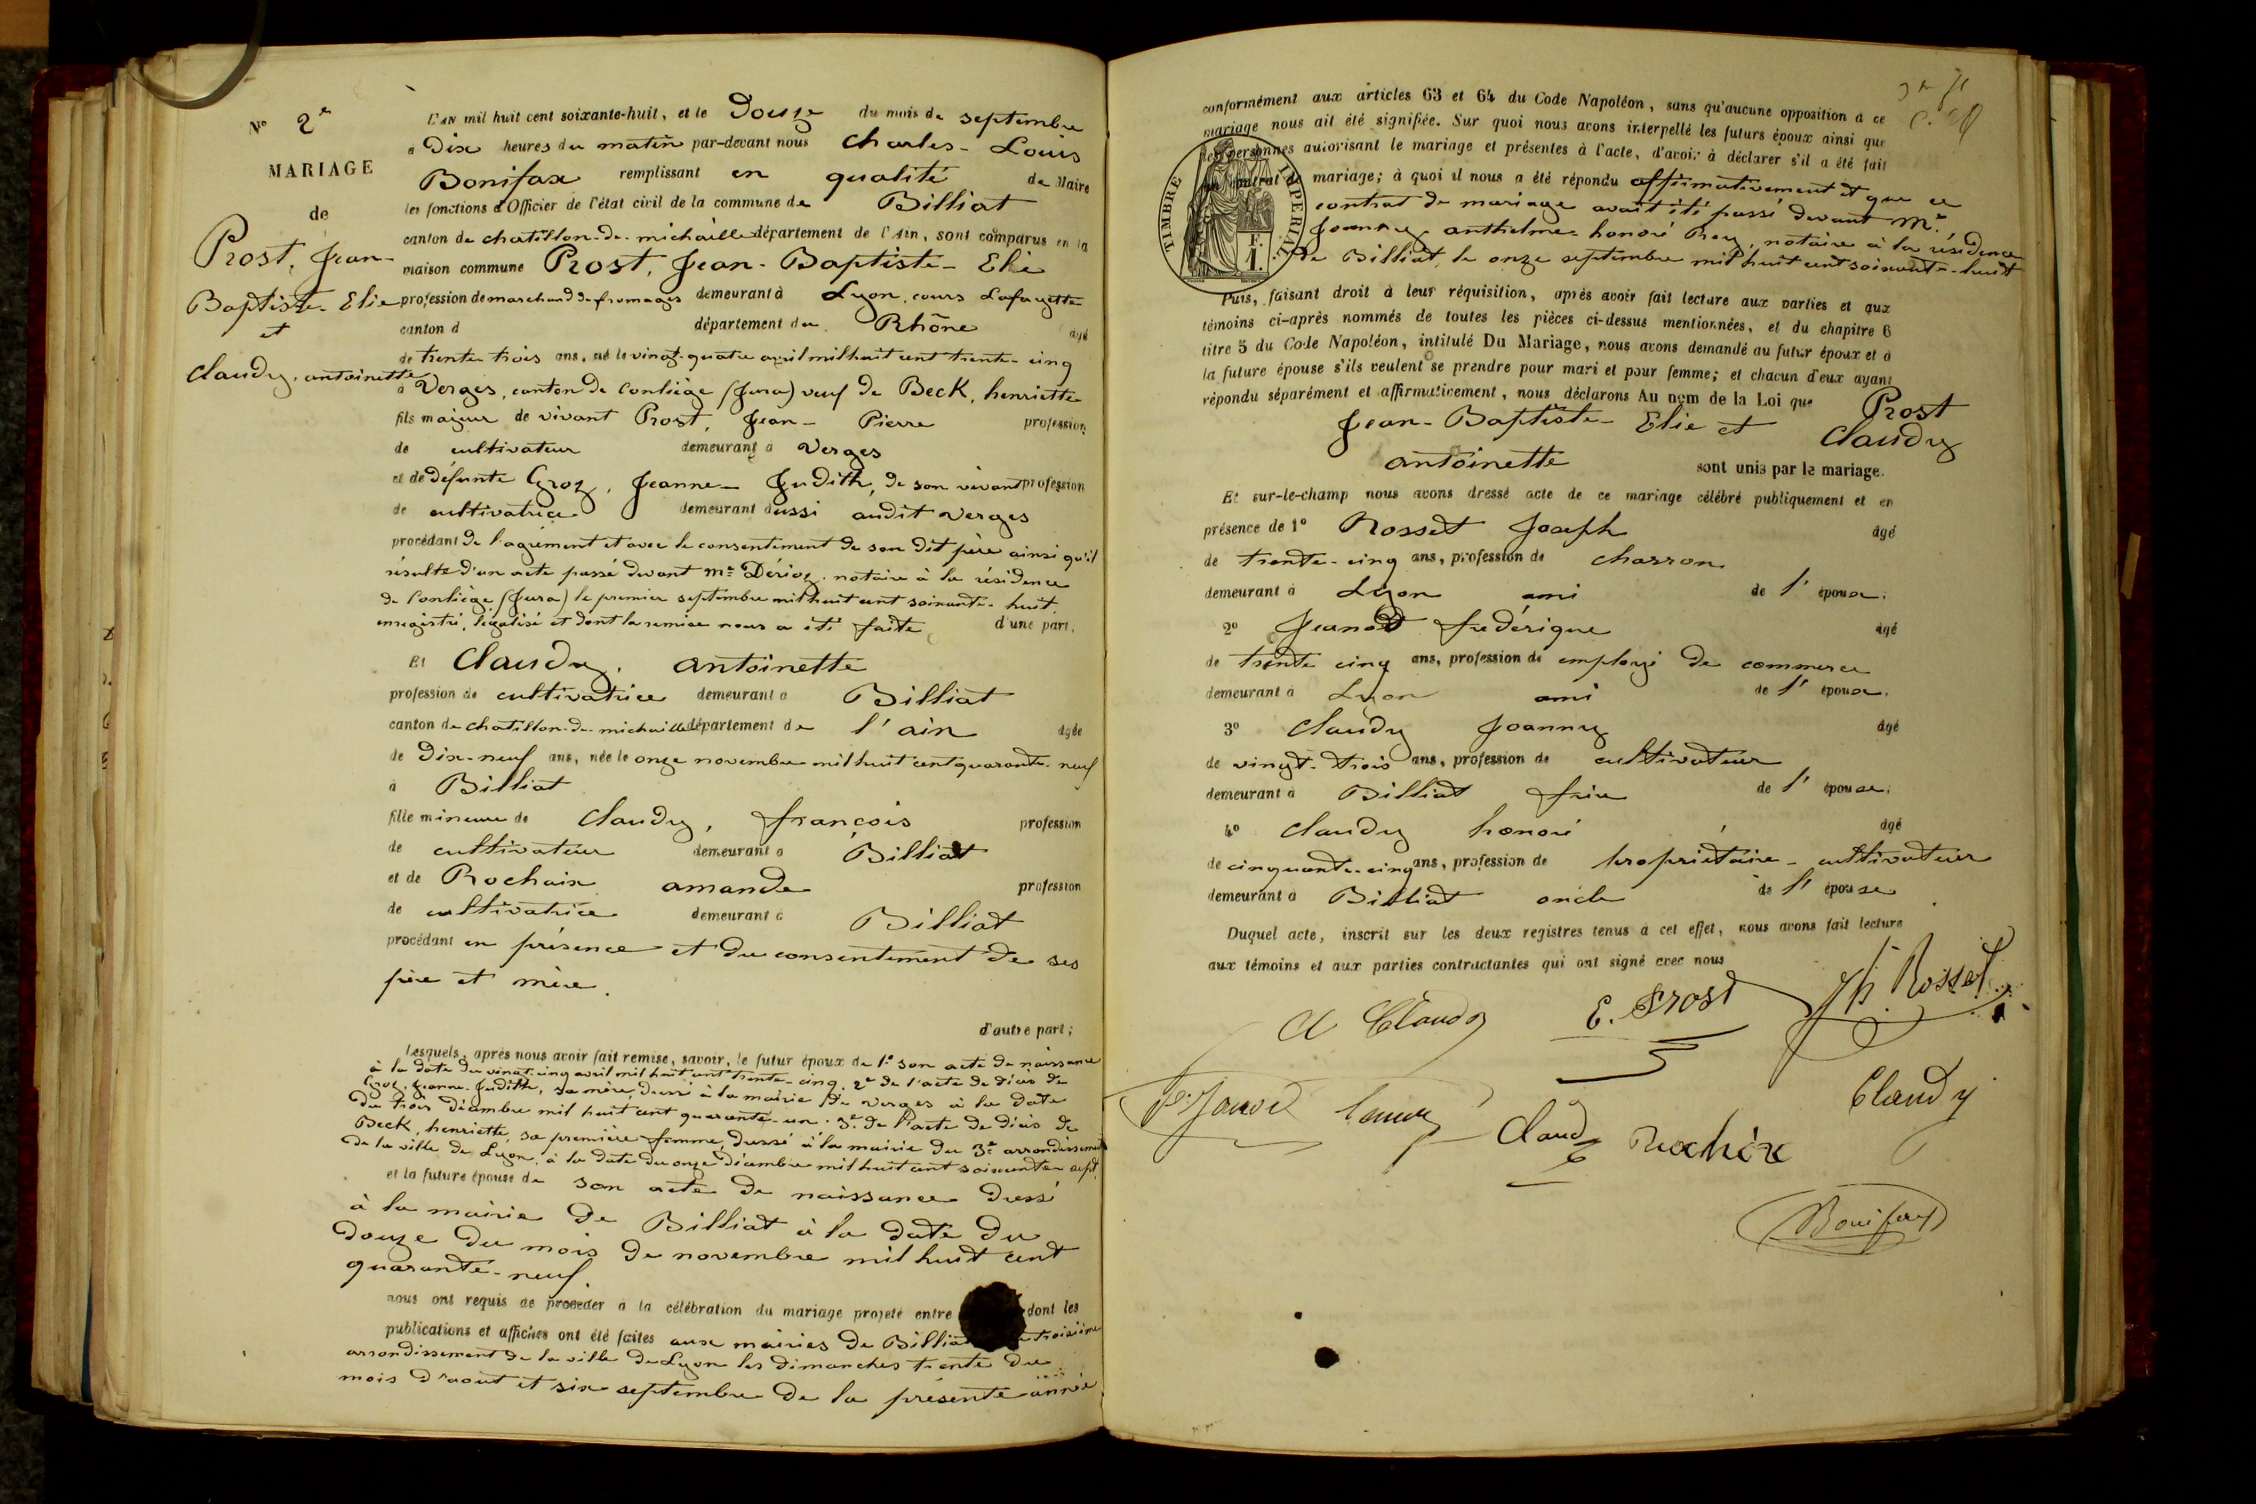 N° 2e
MARIAGE
de
Prost, Jean-
Baptiste-Elie
et
Claudy, antoinette
L'AN mil huit cent soixante-huit, et le Douze du mois de septembre
a Dix heures du matin par-devant nous Charles-Louis
Bonifax remplissant en qualité de Maire
les fonctions d'Officier de l'état civil de la commune de Billiat
canton de chatillon-de-michaille département de l'Ain, sont comparus en la
maison commune Prost, Jean-Baptiste-Elie
profession de marchand de fromages demeurant à Lyon, cours Lafayette
canton d département du Rhône agé
de trente-trois ans, né le vingt-quatre avril mil huit cent trente-cinq
à Verges, canton de Conliège (Jura) veuf de Beck, henriette
fils majeur de vivant Prost, Jean-Pierre profession
de cultivateur demeurant à Verges
et de défunte Groz, Jeanne-Judith, de son vivant profession
de cultivatrice demeurant aussi audit Verges
procédant de l'agrément et avec le consentement de son dit père ainsi qu'il
résulte d'un acte passé devant Me Dérioz, notaire à la résidence
de Conliège (Jura) le premier septembre mil huit cent soixante-huit,
enregistré, légalisé et dont la remise nous a été faite d'une part,
Et Claudy, antoinette
profession de cultivatrice demeurant à Billiat
canton de chatillon-de-michaille département de l'ain agée
de Dix-neuf ans, née le onze novembre mil huit cent quarante-neuf
à Billiat
fille mineure de Claudy, françois profession
de cultivateur demeurant à Billiat
et de Rochaix amande profession
de cultivatrice demeurant à Billiat
procédant en présence et du consentement de ses
père et mère.
d'autre part;
Lesquels, après nous avoir fait remise, savoir, le futur époux de 1° son acte de naissance
à la date du vingt-cinq avril mil huit cent trente-cinq, 2° de l'acte de décès de
Groz, Jeanne-Judith, sa mère, dressé à la mairie de Verges à la date
du trois décembre mil huit cent quarante-un. 3° de l'acte de décès de
Beck, henriette, sa première femme, dressé à la mairie du 3e arrondissement
de la ville de Lyon, à la date du onze décembre mil huit cent soixante-sept,
et la future épouse de son acte de naissance dressé
à la mairie de Billiat à la date du
Douze du mois de novembre mil huit cent
quarante-neuf.
nous ont requis de procéder à la célébration du mariage projeté entre dont les
publications et affiches ont été faites aux mairies de Billiat troisième
arrondissement de la ville de Lyon les dimanches trente du
mois d'aout et six septembre de la présente année
conformément aux articles 63 et 64 du Code Napoléon, sans qu'aucune opposition à ce
mariage nous ait été signifiée. Sur quoi nous avons interpellé les futurs époux ainsi que
les personnes autorisant le mariage et présentes à l'acte, d'avoir à déclarer s'il a été fait
un contrat de mariage; à quoi il nous a été répondu affirmativement et que ce
contrat de mariage avait été passé devant Me
Joanny-anthelme-honoré Rey, notaire à la résidence
de Billiat, le onze septembre mil huit cent soixante-huit
TIMBRE IMPERIAL
F.
1.
Puis, faisant droit à leur réquisition, après avoir fait lecture aux parties et aux
témoins ci-après nommés de toutes les pièces ci-dessus mentionnées, et du chapitre 6
titre 5 du Code Napoléon, intitulé Du Mariage, nous avons demandé au futur époux et à
la future épouse s'ils veulent se prendre pour mari et pour femme; et chacun d'eux ayant
répondu séparément et affirmativement, nous déclarons Au nom de la Loi que Prost
Jean-Baptiste-Elie et Claudy
antoinette sont unis par le mariage.
Et sur-le-champ nous avons dressé acte de ce mariage célébré publiquement et en
présence de 1° Rosset Joseph âgé
de trente-cinq ans, profession de charron
demeurant à Lyon ami de l'époux.
2° Jeanod frédérique agé
de trente cinq ans, profession de employé de commerce
demeurant à Lyon ami de l'époux.
3° Claudy Joanny âgé
de vingt-trois ans, profession de cultivateur
demeurant à Billiat frère de l'épouse;
4° Claudy honoré âgé
de cinquante-cinq ans, profession de propriétaire-cultivateur
demeurant à Billiat oncle de l'épouse
Duquel acte, inscrit sur les deux registres tenus à cet effet, nous avons fait lecture
aux témoins et aux parties contractantes qui ont signé avec nous
A Claudy E. Prost Jh Rosset
Claudy
Claudy Rochèx
Bonifax